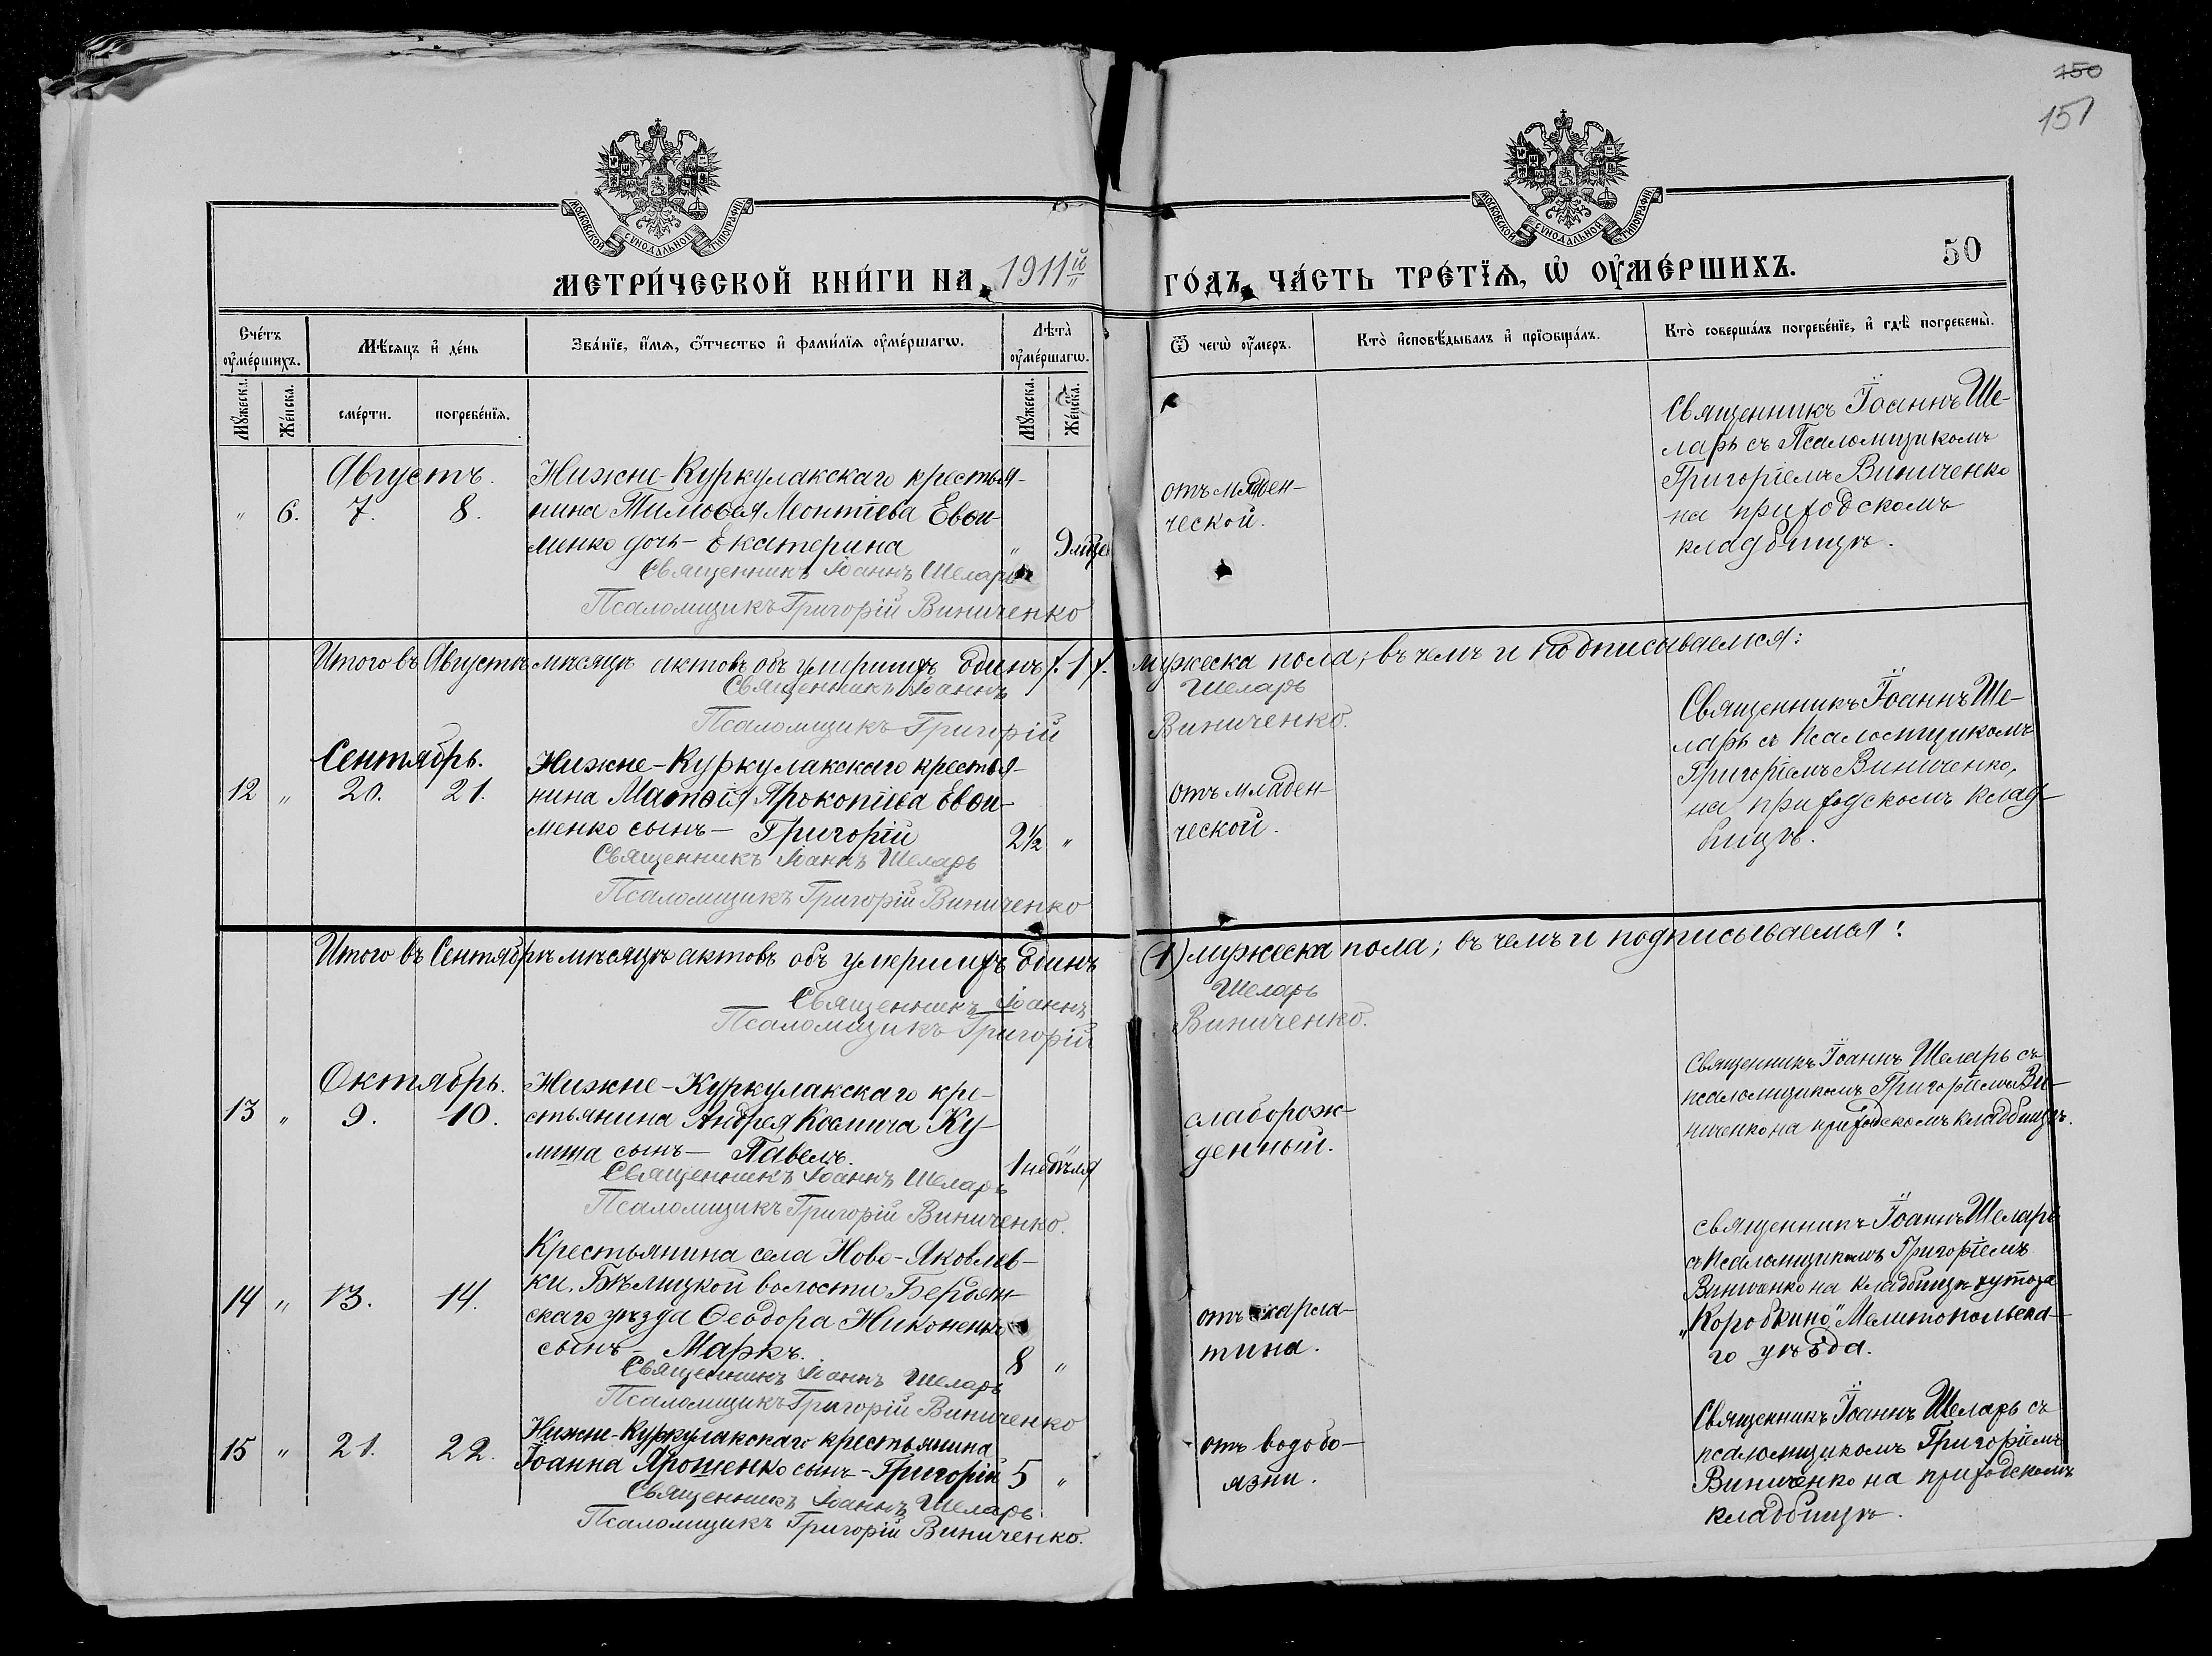 150
151
МОСКОВСКОЙ СѴНОДАЛЬНОЙ ТИПОГРАФІИ
МОСКОВСКОЙ СѴНОДАЛЬНОЙ ТИПОГРАФІИ
МЕТРИ́ЧЕСКОЙ КНИ́ГИ НА 1911й ГО́ДЪ, ЧА́СТЬ ТРЕ́ТЇѦ, Ѡ҆ ОУ҆МЕ́РШИХЪ.
50
Сче́тъ оу҆ме́ршихъ.
Мѣ́сѧцъ и҆ де́нь
Зва́нїе, и҆́мѧ, ѻ҆́тчество и҆ фами́лїѧ оу҆ме́ршагѡ.
Лѣта̀ оу҆ме́ршагѡ.
Ѿ чегѡ̀ оу҆́меръ.
Кто̀ и҆сповѣ́дывалъ и҆ прїѡбща́лъ.
Кто̀ соверша́лъ погребе́нїе, и҆ гдѣ̀ погребены̀.
Мꙋ́жеска.
Же́нска.
сме́рти.
погребе́нїѧ.
Мꙋ́жеска.
Же́нска.
Августъ.
" 6. 7. 8.
Нижне-Куркулакскаго крестья-
нина Тимоѳея Леонтіева Евѳи-
менко дочь - Екатерина
" 9 мѣс
Священникъ Іоаннъ Шеларь
Псаломщикъ Григорій Виниченко
отъ младен-
ческой.
Священникъ Іоаннъ Ше-
ларь съ Псаломщикомъ
Григоріемъ Виниченко
на приходскомъ
кладбищѣ.
Итого въ Августѣ мѣсяцѣ актовъ объ умершихъ одинъ /. 1 /. мужеска пола; въ чемъ и подписываемся:
Священникъ Іоаннъ Шеларь
Псаломщикъ Григорій Виниченко.
Сентябрь.
12 " 20. 21.
Нижне-Куркулакскаго крестья-
нина Матѳія Прокопіева Евѳи-
менко сынъ - Григорій
2½ "
Священникъ Іоаннъ Шеларь
Псаломщикъ Григорій Виниченко
отъ младен-
ческой.
Священникъ Іоаннъ Ше-
ларь съ Псаломщикомъ
Григоріемъ Виниченко,
на приходскомъ клад-
бищѣ.
Итого въ Сентябрѣ мѣсяцѣ актовъ объ умершихъ одинъ (1) мужеска пола; въ чемъ и подписываемся:
Священникъ Іоаннъ Шеларь
Псаломщикъ Григорій Виниченко.
Октябрь.
13 " 9. 10.
Нижне-Куркулакскаго кре-
стьянина Андрея Космича Ку-
лиша сынъ - Павелъ.
1 недѣля "
Священникъ Іоаннъ Шеларь
Псаломщикъ Григорій Виниченко.
слаборож-
денный.
Священникъ Іоаннъ Шеларь съ
псаломщикомъ Григоріемъ Ви-
ниченко на приходскомъ кладбищѣ.
14 " 13. 14.
Крестьянина села Ново-Яковлев-
ки, Бѣлицкой волости Бердян-
скаго уѣзда Ѳеодора Никоненко
сынъ - Маркъ.
8 "
Священникъ Іоаннъ Шеларь
Псаломщикъ Григорій Виниченко
отъ скарла-
тина.
священникъ Іоаннъ Шеларь
съ Псаломщикомъ Григоріемъ
Виниченко на кладбищѣ хутора
„Коробкино" Мелитопольска-
го уѣзда.
15 " 21. 22.
Нижне-Куркулакскаго крестьянина
Іоанна Ярошенко сынъ - Григорій
5 "
Священникъ Іоаннъ Шеларь
Псаломщикъ Григорій Виниченко.
отъ водобо-
язни.
Священникъ Іоаннъ Шеларь съ
псаломщикомъ Григоріемъ
Виниченко на приходскомъ
кладбищѣ.